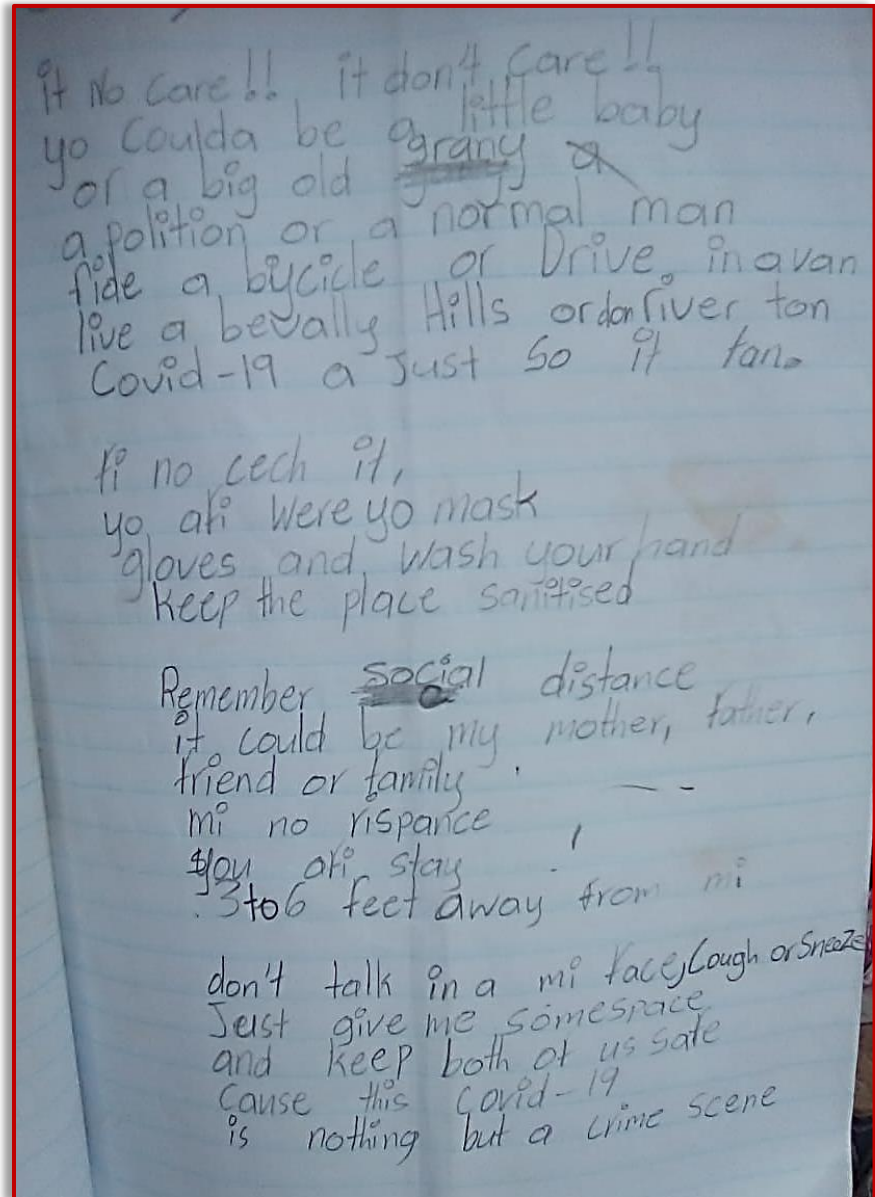 it No care!! it don't care!!
yo coulda be a little baby
or a big old grany
a polition or a normal man
ride a bycicle or Drive in a van
live a bevally Hills or don river ton
Covid-19 a Just so it tan.
fi no cech it,
yo afi were yo mask
gloves and wash your hand
keep the place sanitised
Remember social distance
it could be my mother, father,
friend or family
mi no rispance
you afi stay
3 to 6 feet away from mi
don't talk in a mi face, Cough or Sneeze
Just give me some space
and keep both of us safe
Cause this Covid-19
is nothing but a crime scene